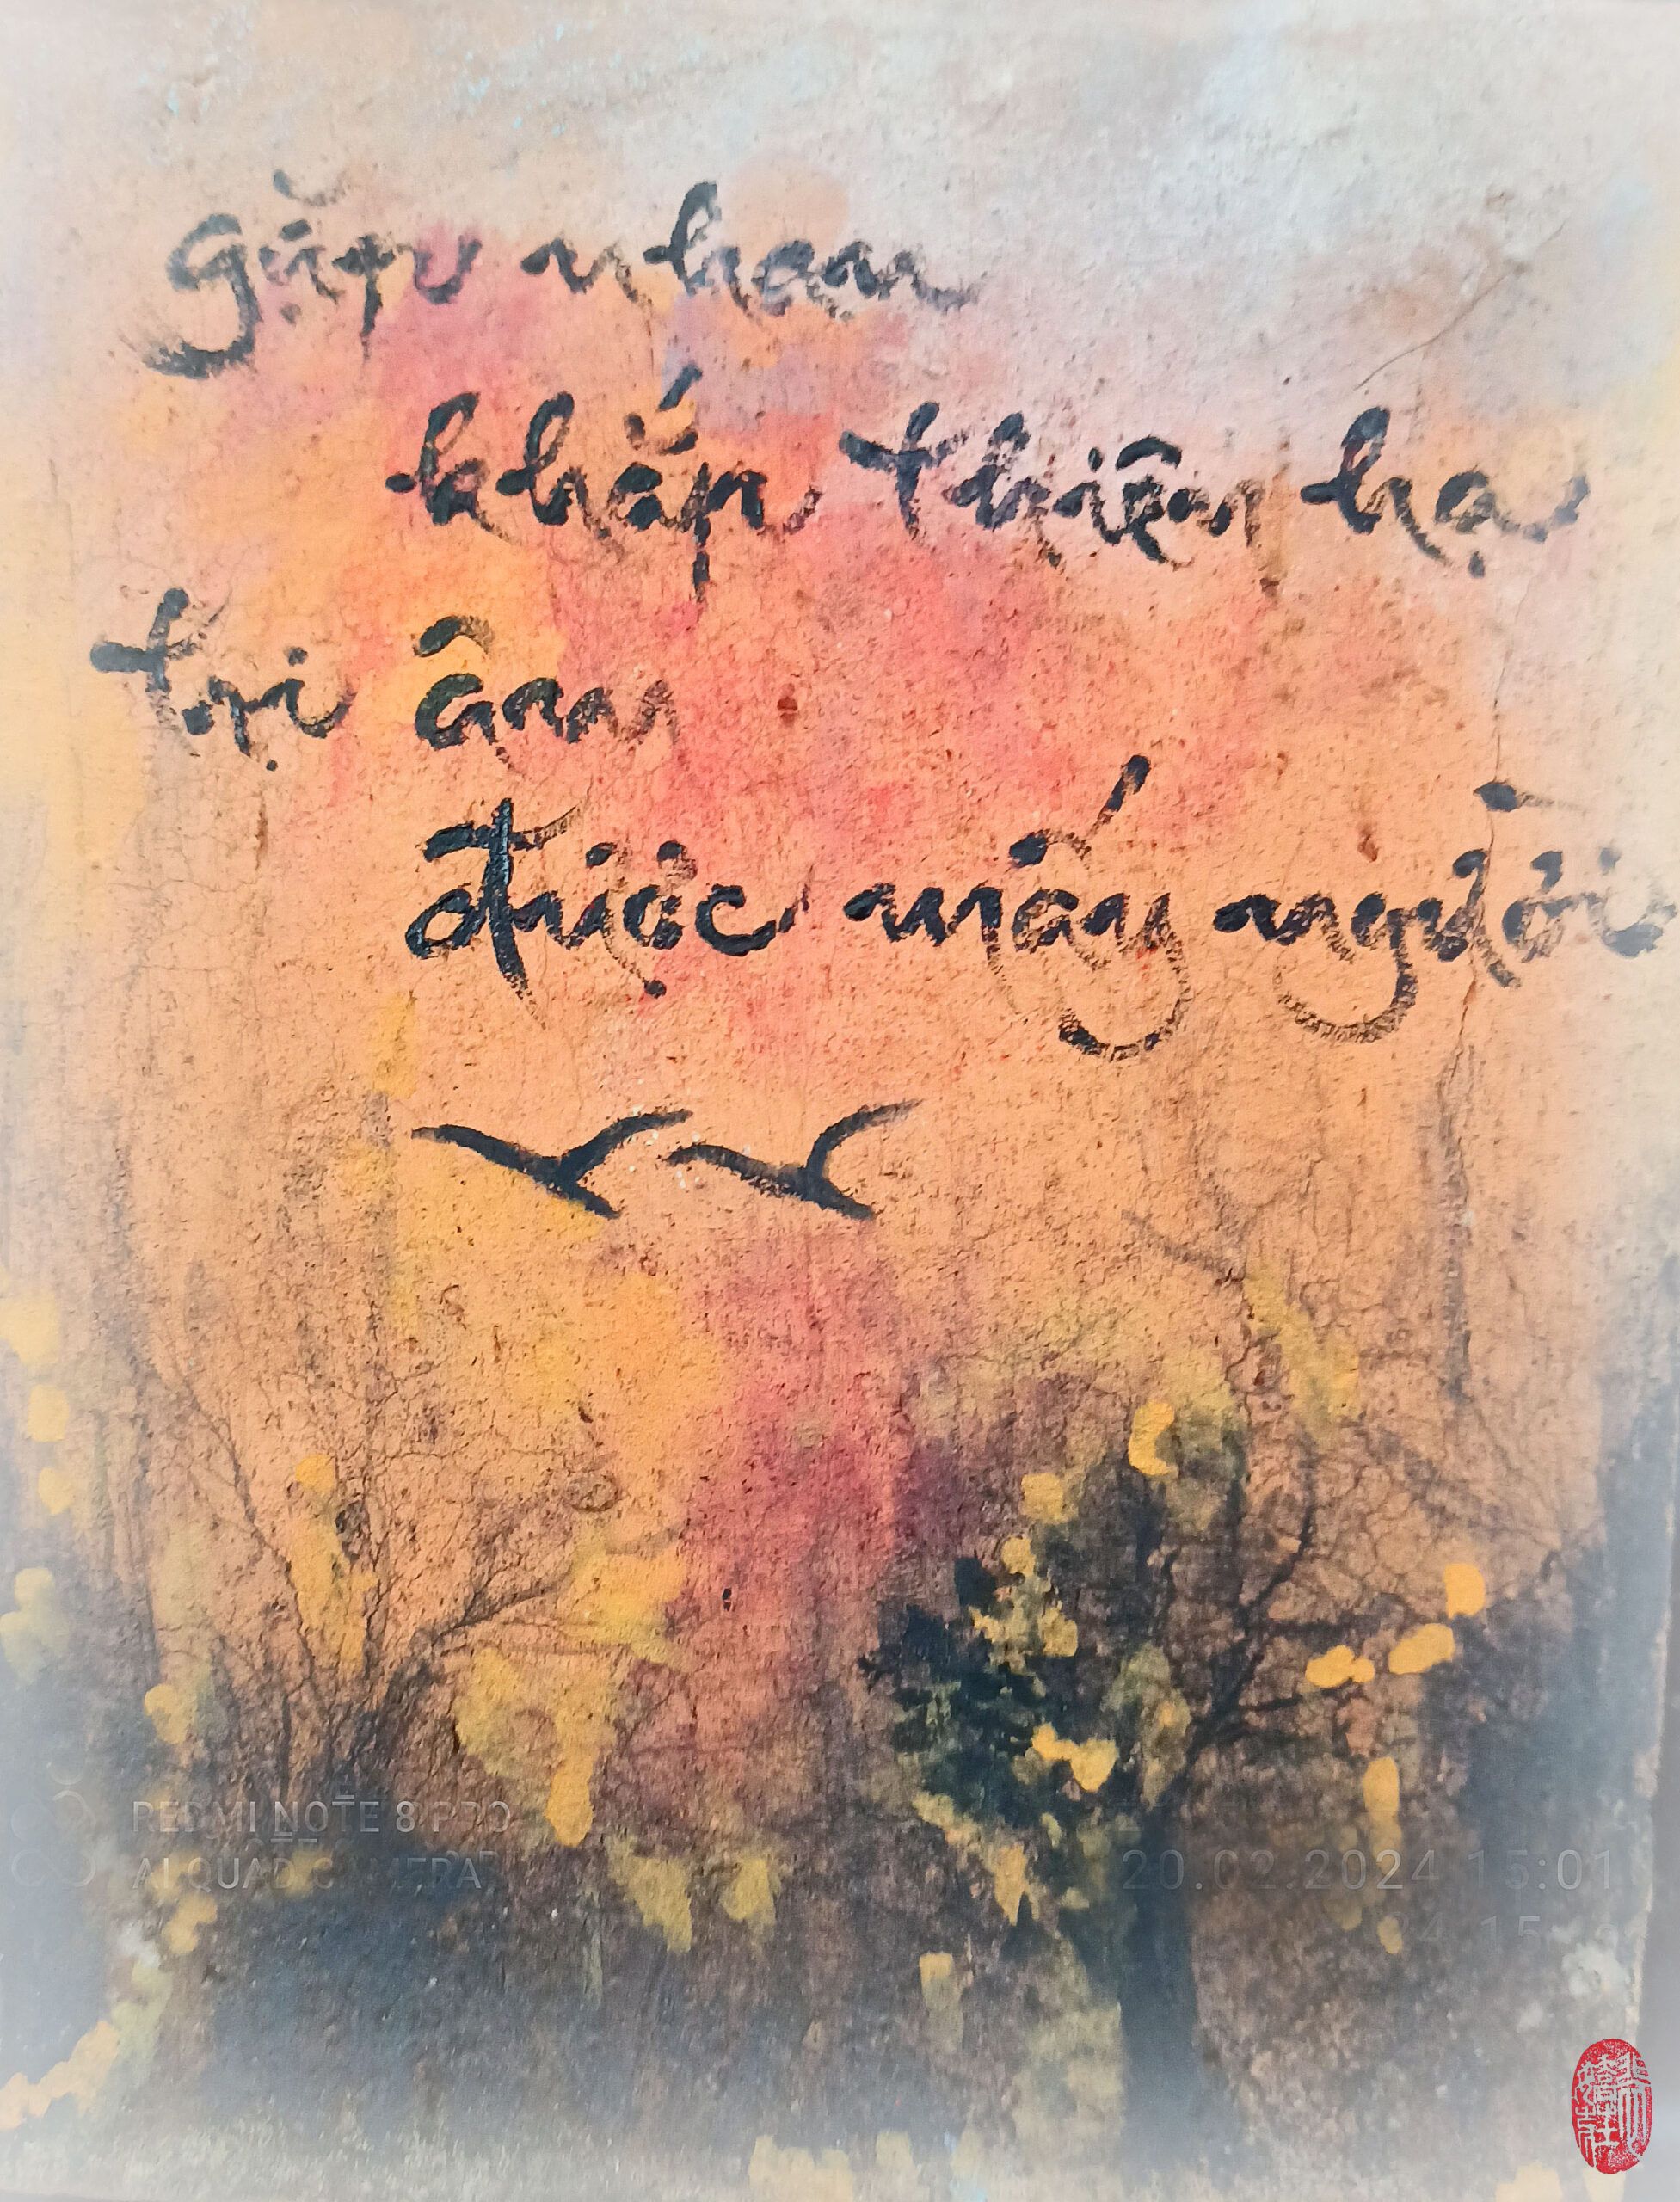 gặp nhau
khắp thiên hạ
tri âm
được mấy người
REDMI NOTE 8 PRO
AI QUAD CAMERA
20.02.2024 15:01